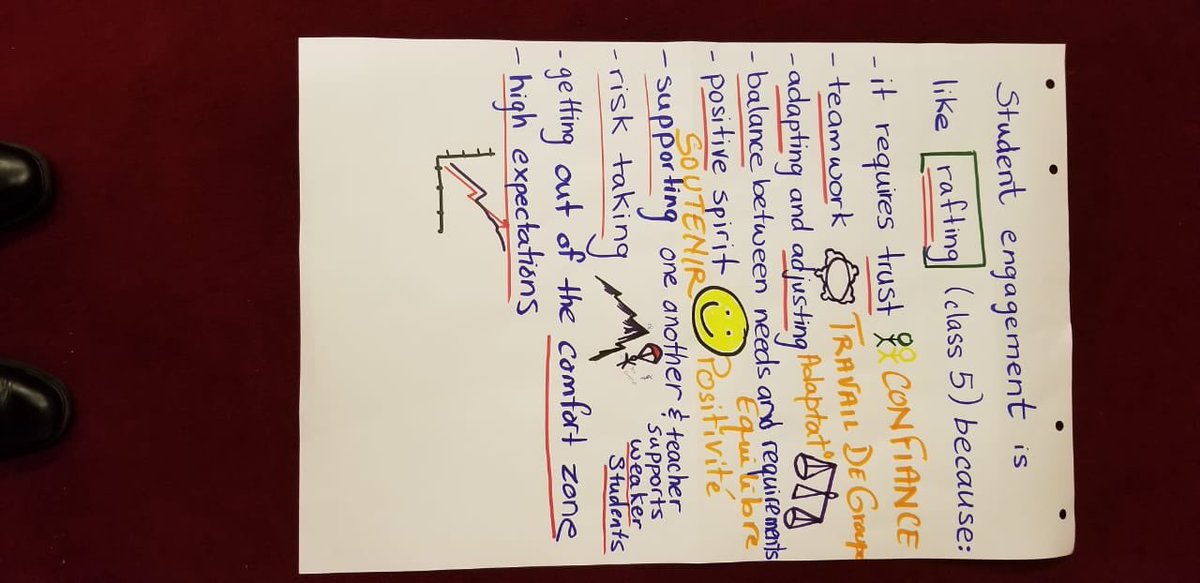 Student engagement is
like rafting (class 5) because:
- it requires trust CONFIANCE
- teamwork TRAVAIL DE Groupe
- adapting and adjusting Adaptat°
- balance between needs and requirements
Equilibre
- positive spirit Positivité
SOUTENIR
- supporting one another & teacher
supports
weaker
students
- risk taking
- getting out of the comfort zone
- high expectations